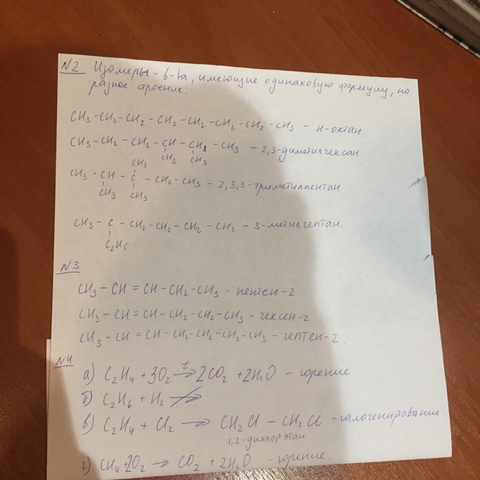 №2 Изомеры - в-ва, имеющие одинаковую формулу, но
разное строение.
CH3 - CH2 - CH2 - CH2 - CH2 - CH2 - CH2 - CH3 - н-октан
CH3 - CH2 - CH2 - CH - CH2 - CH3 - 2,3-диметилгексан
CH3 CH3
CH3 - CH - C - CH2 - CH3 - 2,3,3-триметилпентан
CH3
CH3 CH3
CH3 - C - CH2 - CH2 - CH2 - CH3 - 3-метилгептан.
C2H5
№3
CH3 - CH = CH - CH2 - CH3 - пентен-2
CH3 - CH = CH - CH2 - CH2 - CH3 - гексен-2
CH3 - CH = CH - CH2 - CH2 - CH2 - CH3 - гептен-2.
№4
а) C2H4 + 3O2 t→ 2CO2 + 2H2O - горение
б) C2H6 + H2 ↛
в) C2H4 + Cl2 → CH2Cl - CH2Cl - галогенирование
1,2-дихлорэтан
г) CH4 + 2O2 → CO2 + 2H2O - горение.